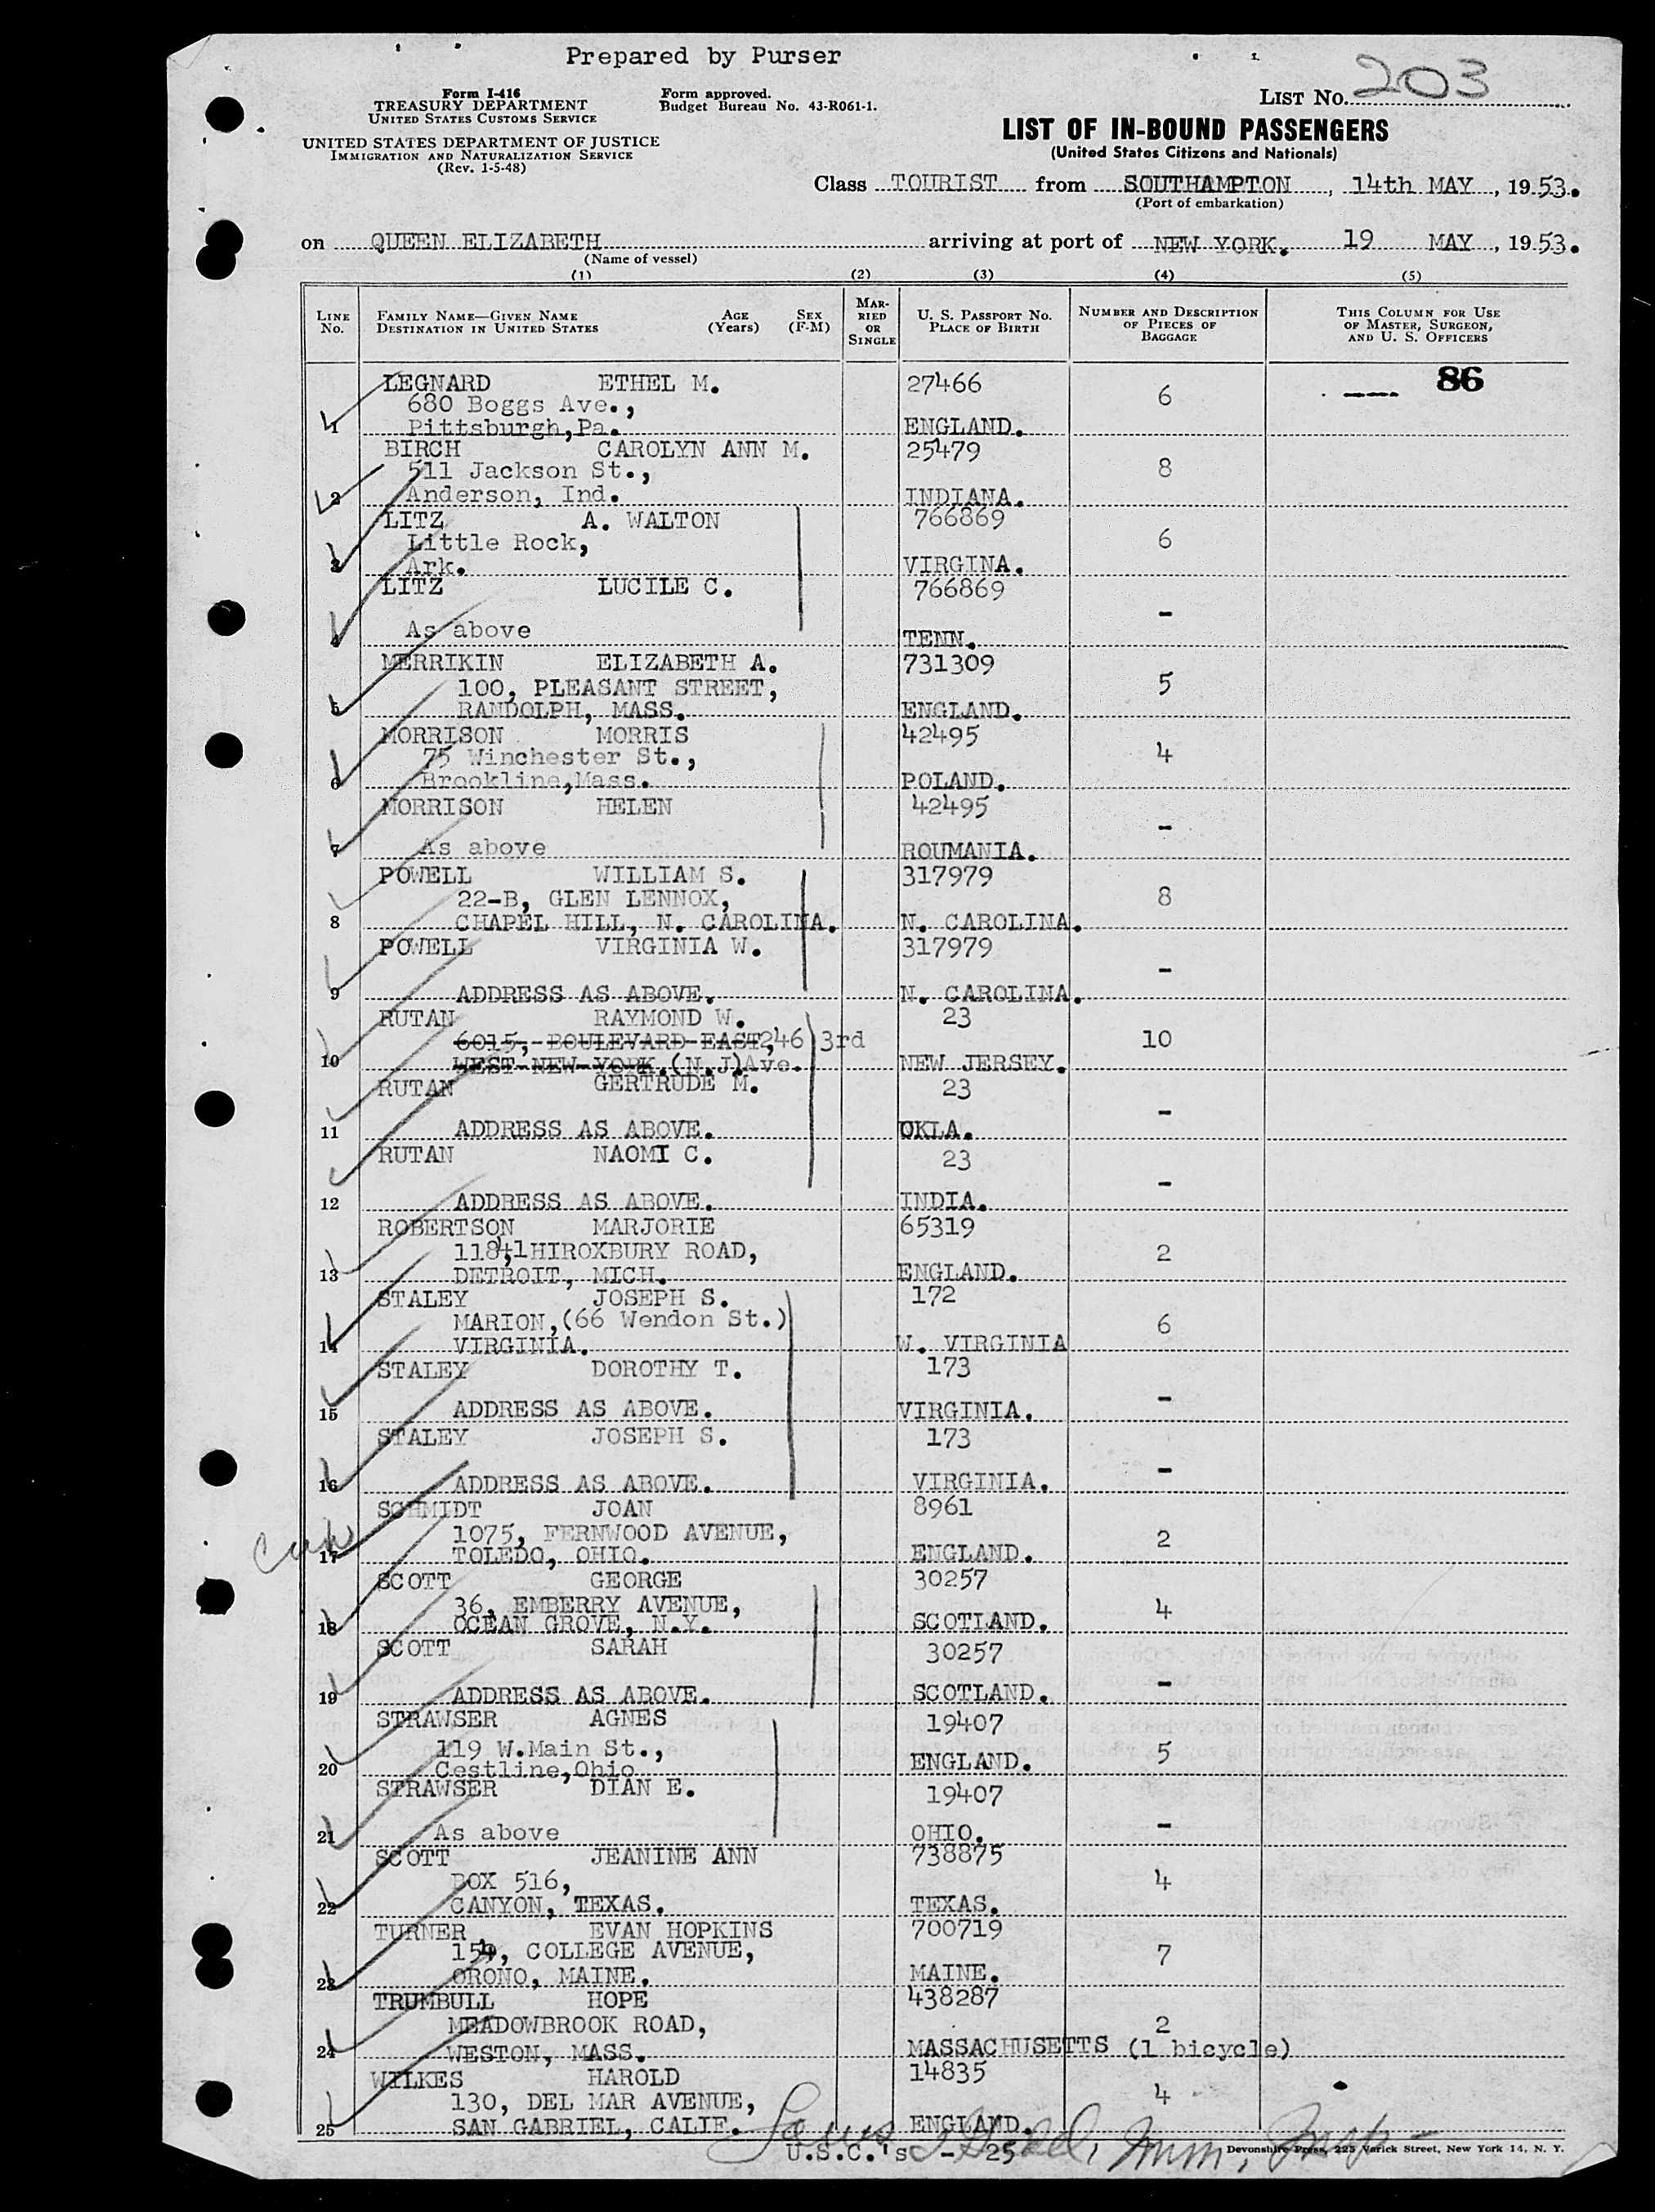 Prepared by Purser
Form I-416
TREASURY DEPARTMENT
UNITED STATES CUSTOMS SERVICE
Form approved.
Budget Bureau No. 43-R061-1.
LIST No. 203
UNITED STATES DEPARTMENT OF JUSTICE
IMMIGRATION AND NATURALIZATION SERVICE
(Rev. 1-5-48)
LIST OF IN-BOUND PASSENGERS
(United States Citizens and Nationals)
Class TOURIST from SOUTHAMPTON, 14th MAY, 1953.
(Port of embarkation)
on QUEEN ELIZABETH arriving at port of NEW YORK. 19 MAY, 1953.
(Name of vessel)
(1) (2) (3) (4) (5)
LINE No. FAMILY NAME—GIVEN NAME DESTINATION IN UNITED STATES AGE (Years) SEX (F-M) MARRIED OR SINGLE U. S. PASSPORT NO. PLACE OF BIRTH NUMBER AND DESCRIPTION OF PIECES OF BAGGAGE THIS COLUMN FOR USE OF MASTER, SURGEON, AND U. S. OFFICERS
LEGNARD ETHEL M. 27466 — 86
680 Boggs Ave., 6
1 Pittsburgh,Pa. ENGLAND.
BIRCH CAROLYN ANN M. 25479
511 Jackson St., 8
2 Anderson, Ind. INDIANA.
LITZ A. WALTON 766869
Little Rock, 6
3 Ark. VIRGINA.
LITZ LUCILE C. 766869
-
4 As above TENN.
MERRIKIN ELIZABETH A. 731309
100, PLEASANT STREET, 5
5 RANDOLPH, MASS. ENGLAND.
MORRISON MORRIS 42495
75 Winchester St., 4
6 Brookline,Mass. POLAND.
MORRISON HELEN 42495
-
7 As above ROUMANIA.
POWELL WILLIAM S. 317979
22-B, GLEN LENNOX, 8
8 CHAPEL HILL, N. CAROLINA. N. CAROLINA.
POWELL VIRGINIA W. 317979
-
9 ADDRESS AS ABOVE. N. CAROLINA.
RUTAN RAYMOND W. 23
6015, BOULEVARD EAST, 246 3rd 10
10 WEST NEW YORK.(N.J)Ave. NEW JERSEY.
RUTAN GERTRUDE M. 23
-
11 ADDRESS AS ABOVE. OKLA.
RUTAN NAOMI C. 23
-
12 ADDRESS AS ABOVE. INDIA.
ROBERTSON MARJORIE 65319
ROAD, 2
13 DETROIT, MICH. ENGLAND.
STALEY JOSEPH S. 172
MARION,(66 Wendon St.) 6
14 VIRGINIA. W. VIRGINIA
STALEY DOROTHY T. 173
-
15 ADDRESS AS ABOVE. VIRGINIA.
STALEY JOSEPH S. 173
-
16 ADDRESS AS ABOVE. VIRGINIA.
SCHMIDT JOAN 8961
1075, FERNWOOD AVENUE, 2
17 TOLEDO, OHIO. ENGLAND.
SCOTT GEORGE 30257
36, EMBERRY AVENUE, 4
18 OCEAN GROVE, N.Y. SCOTLAND.
SCOTT SARAH 30257
-
19 ADDRESS AS ABOVE. SCOTLAND.
STRAWSER AGNES 19407
119 W.Main St., 5
20 Cestline,Ohio ENGLAND.
STRAWSER DIAN E. 19407
-
21 As above OHIO.
SCOTT JEANINE ANN 738875
BOX 516, 4
22 CANYON, TEXAS. TEXAS.
TURNER EVAN HOPKINS 700719
COLLEGE AVENUE, 7
23 ORONO, MAINE. MAINE.
TRUMBULL HOPE 438287
MEADOWBROOK ROAD, 2
24 WESTON, MASS. MASSACHUSETTS (1 bicycle)
WILKES HAROLD 14835
130, DEL MAR AVENUE, 4
25 SAN GABRIEL, CALIF. ENGLAND.
U.S.C.'s - 25
Devonshire Press, 225 Varick Street, New York 14, N. Y.